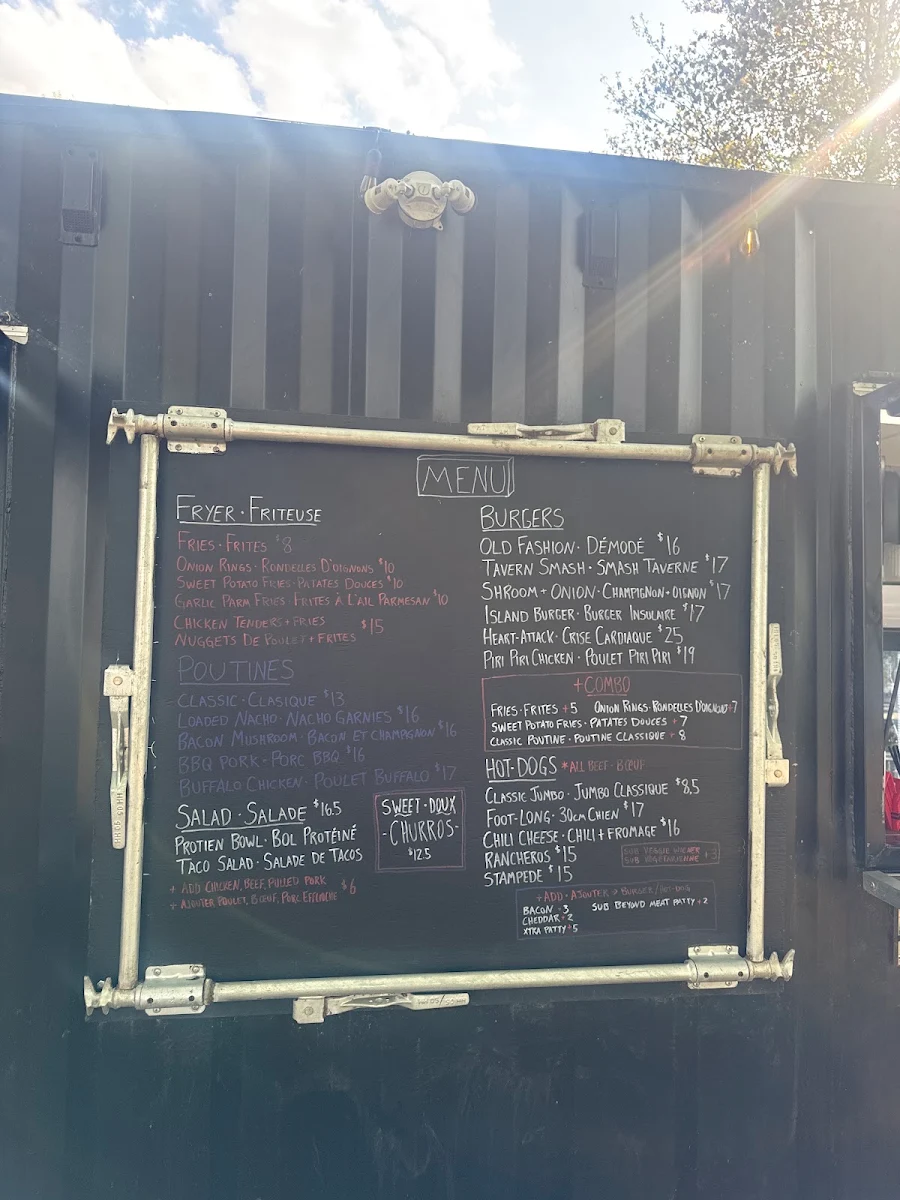 MENU
FRYER · FRITEUSE
FRIES · FRITES $8
ONION RINGS · RONDELLES D'OIGNONS $10
SWEET POTATO FRIES · PATATES DOUCES $10
GARLIC PARM FRIES · FRITES À L'AIL PARMESAN $10
CHICKEN TENDERS + FRIES $15
NUGGETS DE POULET + FRITES
POUTINES
CLASSIC · CLASIQUE $13
LOADED NACHO · NACHO GARNIES $16
BACON MUSHROOM · BACON ET CHAMPIGNON $16
BBQ PORK · PORC BBQ $16
BUFFALO CHICKEN · POULET BUFFALO $17
SALAD · SALADE $16.5
PROTIEN BOWL · BOL PROTÉINÉ
TACO SALAD · SALADE DE TACOS
+ ADD CHICKEN, BEEF, PULLED PORK $6
+ AJOUTER POULET, BŒUF, PORC EFFILOCHE
SWEET · DOUX
- CHURROS -
$12.5
BURGERS
OLD FASHION · DÉMODÉ $16
TAVERN SMASH · SMASH TAVERNE $17
SHROOM + ONION · CHAMPIGNON + OIGNON $17
ISLAND BURGER · BURGER INSULAIRE $17
HEART-ATTACK · CRISE CARDIAQUE $25
PIRI PIRI CHICKEN · POULET PIRI PIRI $19
+ COMBO
FRIES · FRITES + 5 ONION RINGS · RONDELLES D'OIGNONS + 7
SWEET POTATO FRIES · PATATES DOUCES + 7
CLASSIC POUTINE · POUTINE CLASSIQUE + 8
HOT-DOGS *ALL BEEF · BŒUF
CLASSIC JUMBO · JUMBO CLASSIQUE $8,5
FOOT-LONG · 30CM CHIEN $17
CHILI CHEESE · CHILI + FROMAGE $16
RANCHEROS $15
STAMPEDE $15
SUB VEGGIE WIENER
SUB VEGETARIENNE + 3
+ ADD · AJOUTER > BURGER / HOT-DOG
BACON + 3 SUB BEYOND MEAT PATTY + 2
CHEDDAR + 2
XTRA PATTY + 5